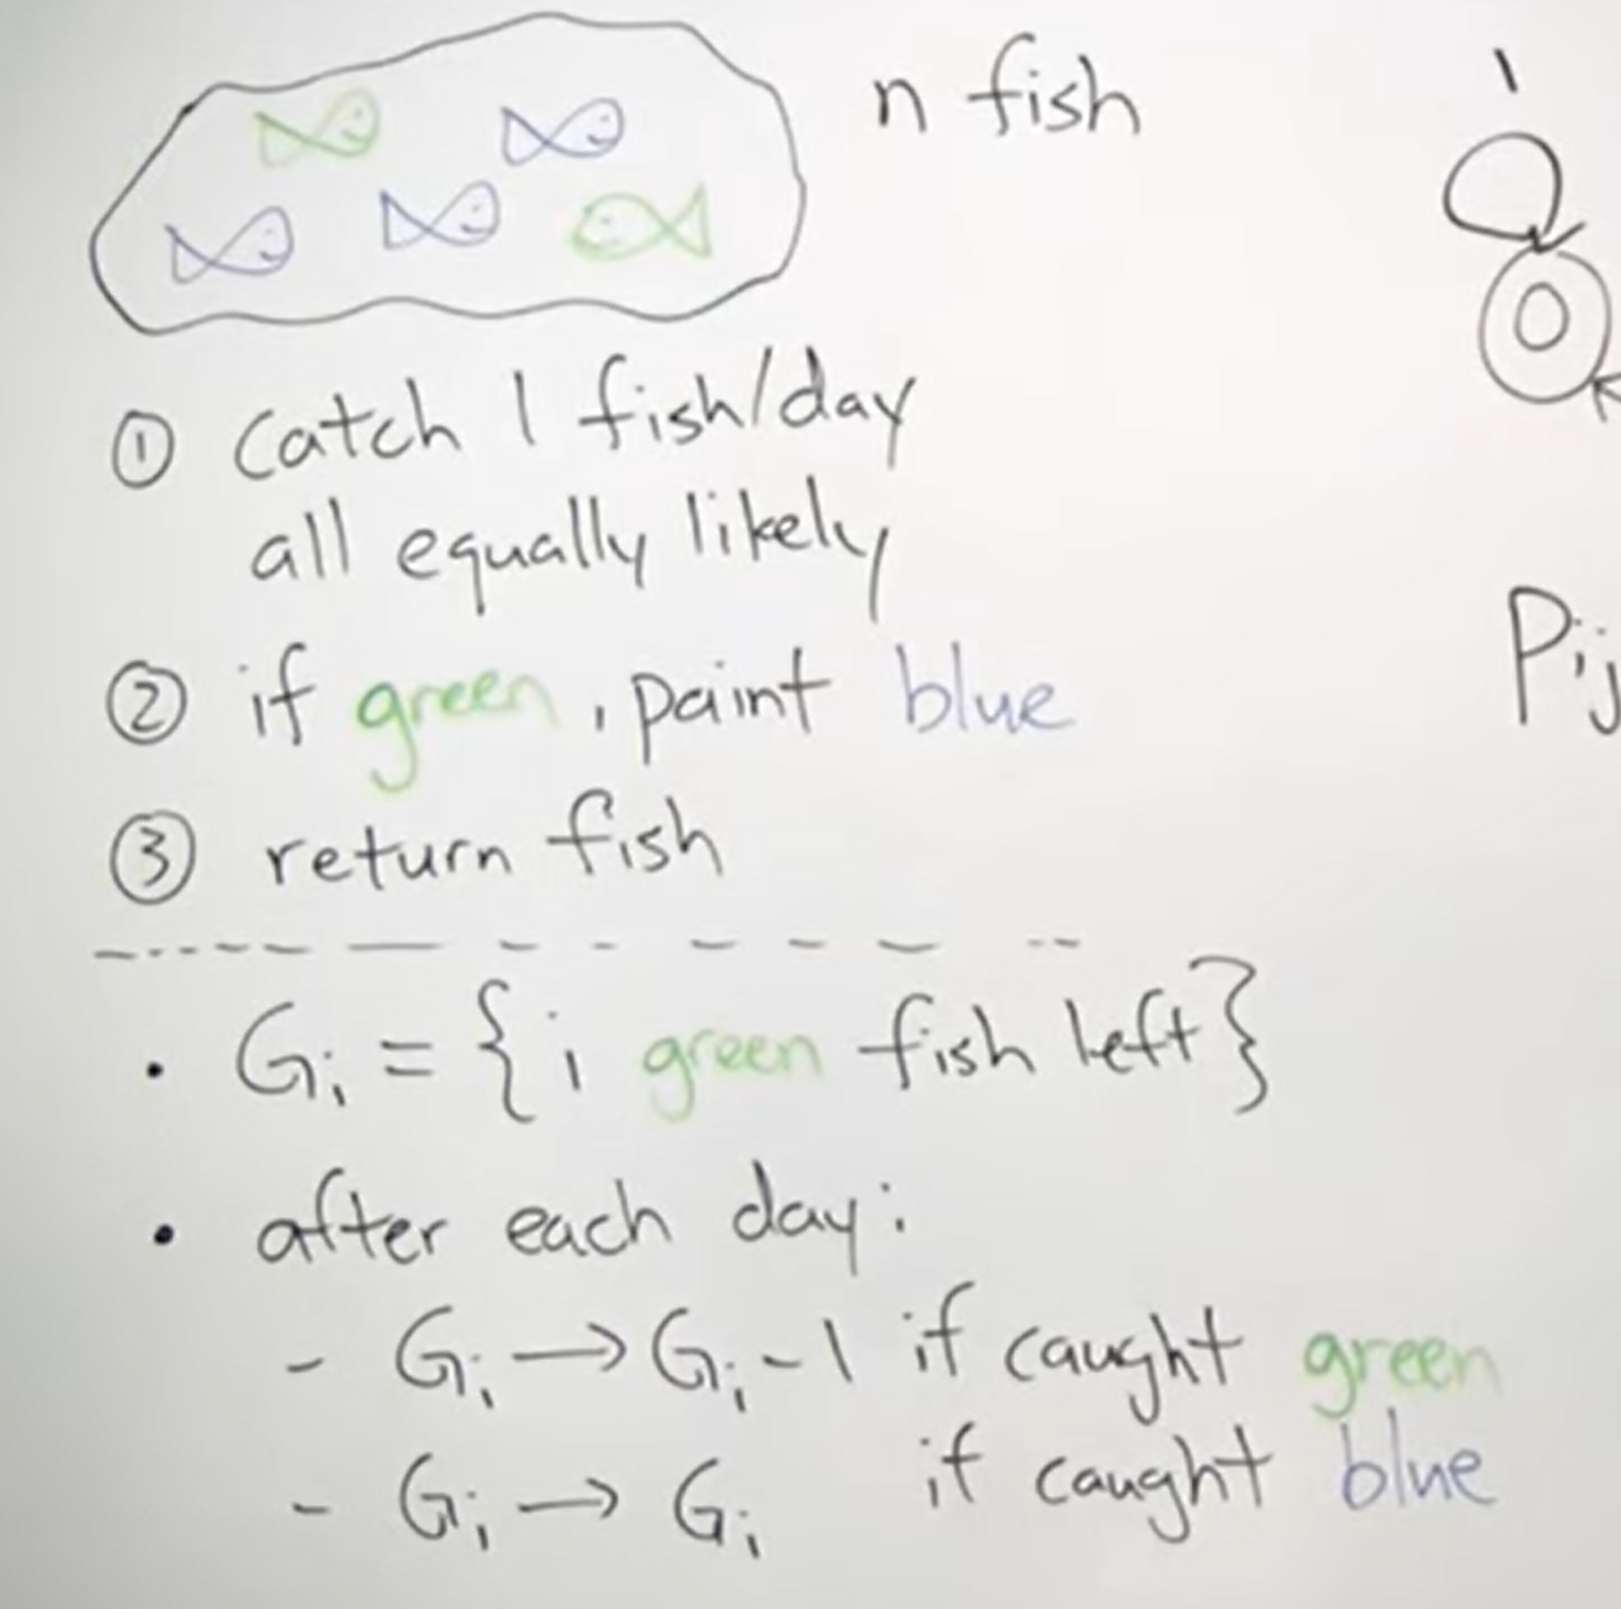 n fish
1
0
① catch 1 fish/day
all equally likely
② if green, paint blue
Pij
③ return fish
• Gi = {i green fish left}
• after each day:
- Gi → Gi-1 if caught green
- Gi → Gi if caught blue